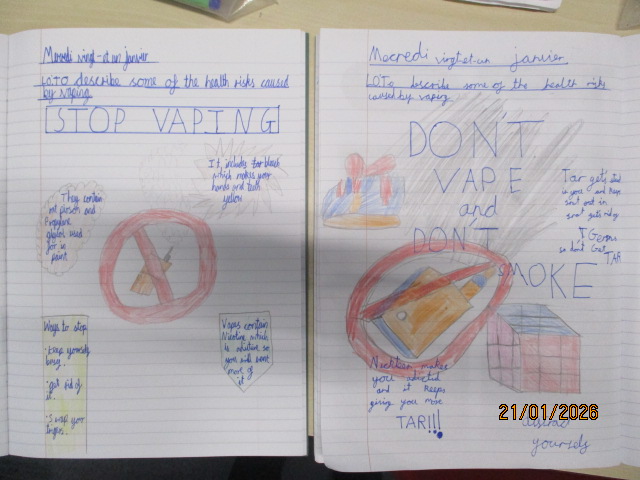 Mecredi vingt-et un janvier
LO:To describe some of the health risks caused
by vaping
STOP VAPING
It includes tar bleach
which makes your
hands and teeth
yellow
They contain
and
Propylene
glycol used
for in
paint.
Ways to stop
· keep yourself
busy.
· get rid of
it.
Vapes contain
Nicotine which
is addictive so
you will want
more of
it
Mecredi vingt-et-un janvier
LO:To describe some of the health risks
caused by vaping
DON'T
VAPE
and
DON'T
SMOKE
Tar gets
in you and keeps
in
snot gets rid
Germs
so don't Get
TAR
makes
you addicted
and it keeps
giving you more
TAR!!!
21/01/2026
yourselfs